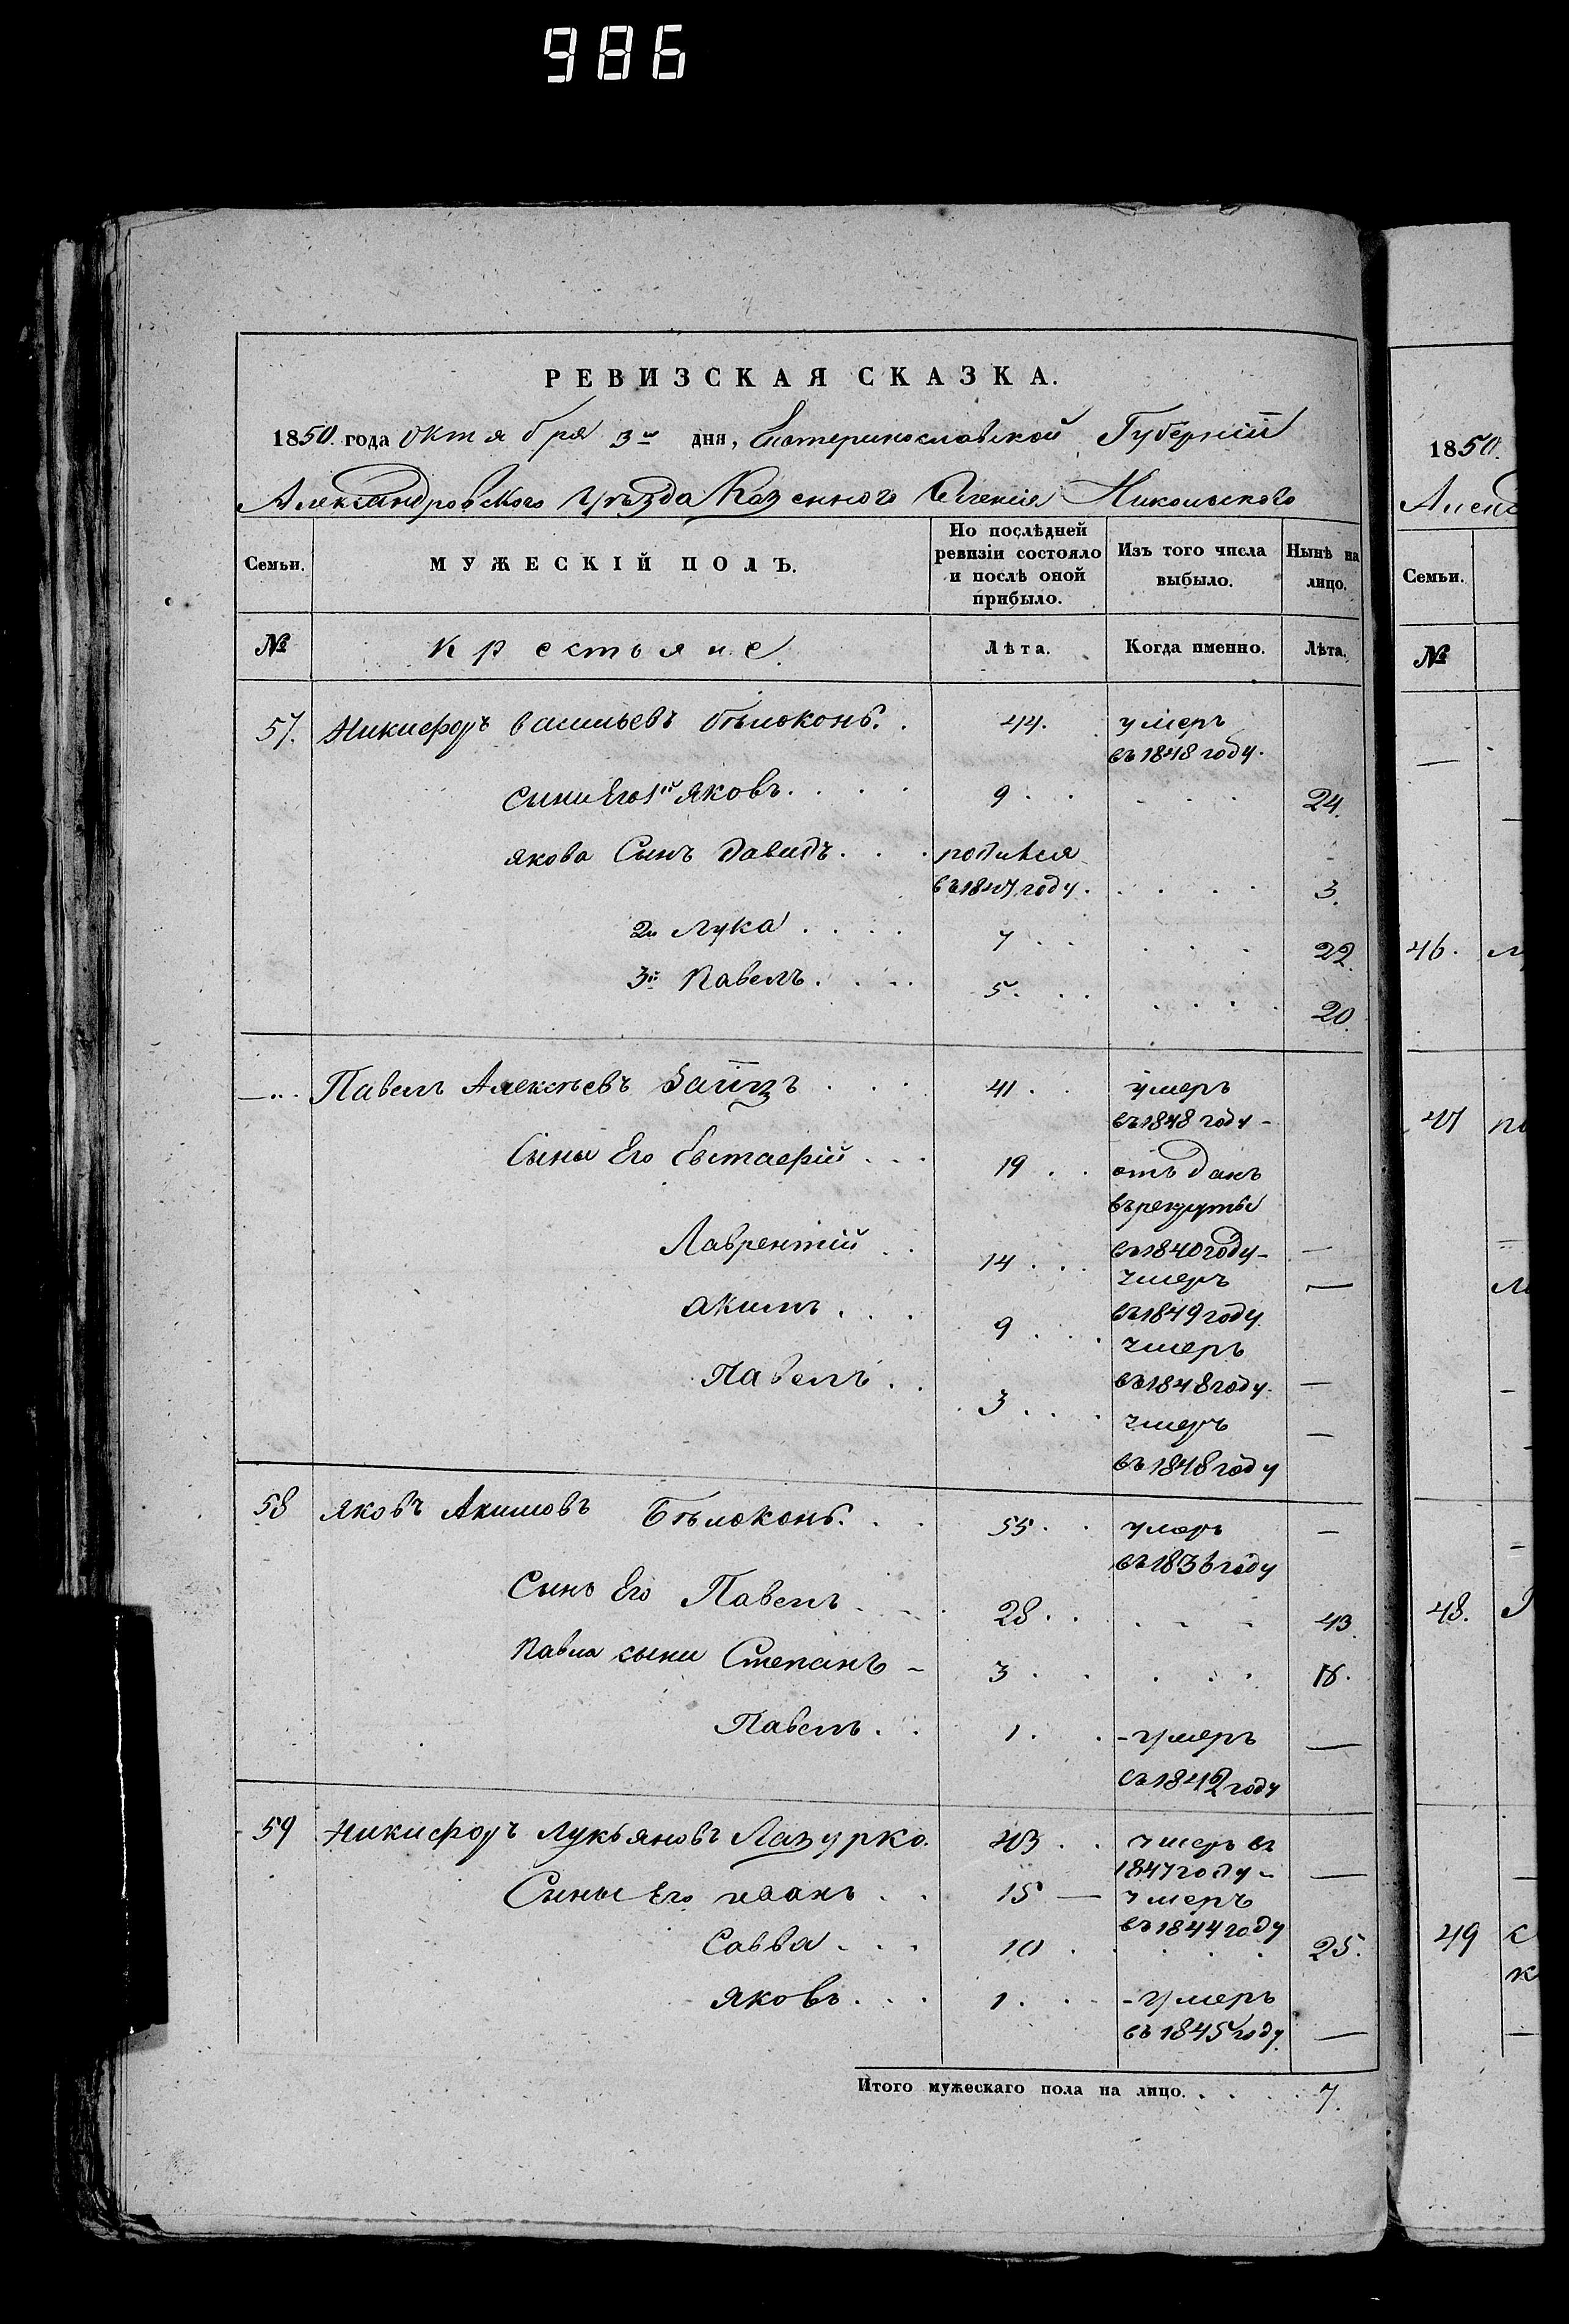 986
РЕВИЗСКАЯ СКАЗКА.
1850. года октября 3го дня, Екатеринославской Губерніи
Александровского Уѣзда Казенного Селенія Никольского
Семьи. МУЖЕСКІЙ ПОЛЪ. По послѣдней ревизіи состояло и послѣ оной прибыло. Изъ того числа выбыло. Нынѣ на лицо.
№ Крестьяне. Лѣта. Когда именно. Лѣта.
57. Никифоръ васильевъ бѣлоконь. 44. умеръ
въ 1848 году.
сыни Его 1й Яковъ. 9 24.
якова Сынъ давидъ. родился
въ 1847 году. 3.
2й Лука 7 22.
3й Павелъ. 5. 20.
Павелъ Алексѣевъ Заицъ 41 умеръ
въ 1848 году
Сыны Его Евстафій 19 отъданъ
въ рекруты
Лаврентій 14 въ 1840 году —
умеръ —
Акимъ 9 въ 1849 году
умеръ
Павелъ. 3 въ 1848 году. —
умеръ —
въ 1848 году
58 Яковъ Акимовъ Бѣлоконь. 55. умеръ —
въ 1836 году
Сынъ Его Павелъ 28 43.
Павла сыни Степанъ 3 18.
Павелъ. 1. умеръ —
въ 1842 году
59 Никифоръ лукьяновъ Лазурко. 43 умеръ въ
1847 году —
Сыны Его иванъ 15 — умеръ
въ 1844 году
Савва 10 25.
Яковъ. 1. умеръ
въ 1845 году —
Итого мужескаго пола на лицо. 7.
1850.
Семьи.
№
46.
47
48.
49